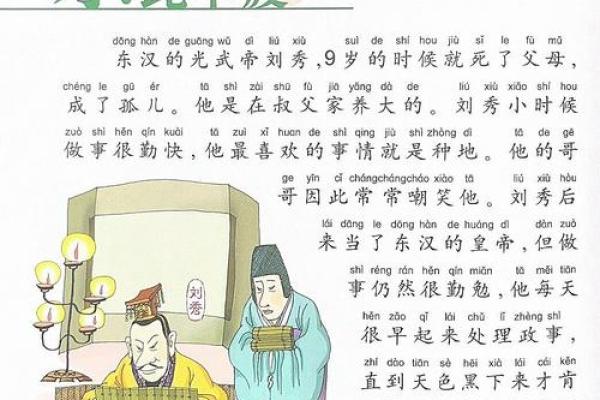 dōng hàn de guāng wǔ dì liú xiù suì de shí hou jiù sǐ le fù mǔ
东汉的光武帝刘秀,9岁的时候就死了父母,
chéng le gū ér tā shì zài shū fù jiā yǎng dà de liú xiù xiǎo shí hou
成了孤儿。他是在叔父家养大的。刘秀小时候
zuò shì hěn qín kuài tā zuì xǐ huan de shì qing jiù shì zhòng dì tā de gē
做事很勤快,他最喜欢的事情就是种地。他的哥
ge yīn cǐ chángchángcháo xiào tā liú xiù hòu
哥因此常常嘲笑他。刘秀后
lái dāng le dōng hàn de huáng dì dàn zuò
来当了东汉的皇帝,但做
shì réng rán hěn qín miǎn tā měi tiān
事仍然很勤勉,他每天
hěn zǎo qǐ lái chǔ lǐ zhèng shì
很早起来处理政事,
zhí dào tiān sè hēi xià lái cái kěn
直到天色黑下来才肯
刘秀